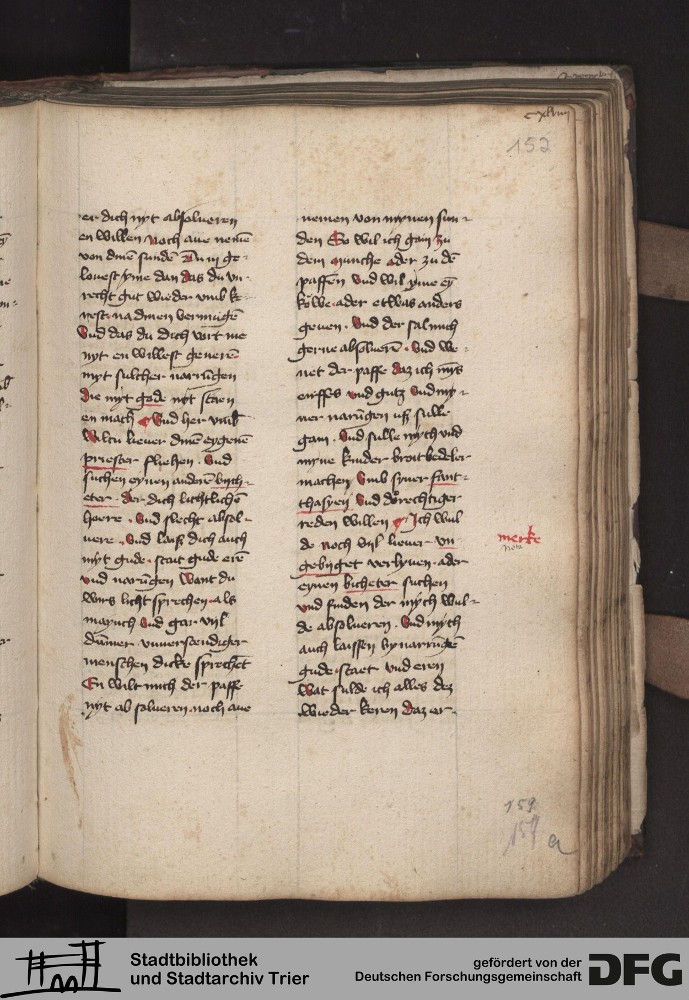 cxlviij
152
er dich nyt absolueren
en willen Noch aue nemē
von dinē sundē Du in ge-
louest yme dan das du vn-
recht gut wieder vmb ke-
rest na dinen vermugē
Vnd das du dich vort me
nyt en willest generē
myt sulcher narūgen
die myt gode nyt staen
en mach Vnd her vmb
wiltu lieuer dinē eygenē
priester fliehen . Vnd
suchen eynen anderē bijch-
eter . der dich lichtlichē
hoere . Vnd slecht absol-
uere . Vnd laiß dich auch
myt gude . staet gude erē
vnd narūgen Want du
wirs licht sprechen als
manich vnd gar vijl
dūmer vnuerstendiger
menschen dicke sprechēt
En wilt mich der paffe
nyt absolueren noch aue
nemen von mynen sun-
den So wil ich gain zu
dem muniche ader zu dē
paffen Vnd wil yme eȳ
kowe . ader etwas anders
geuen . Vnd der sal mich
gerne absoluerē . Vnd we-
net der paffe daz ich myß
eniffes vnd gutz Vnd my-
ner narūgen vß sulle
gain . Vnd sulle mych vnd
myne kinder broitbeideler
machen Vmb syner fant-
thasyen Vnd dorechtiger
reden willen Ich wul
de noch vijl lieuer vn-
gebijget verlyuen . ader
eynen bicheter suchen
vnd finden der mych wul-
de absolueren . Vnd mych
auch laissen by narrūgē
gude . staet vnd eren
Wat sulde ich alles dez
wieder keren daz er
merke
nota
159
157
a
Stadtbibliothek
und Stadtarchiv Trier
gefördert von der
Deutschen Forschungsgemeinschaft
DFG